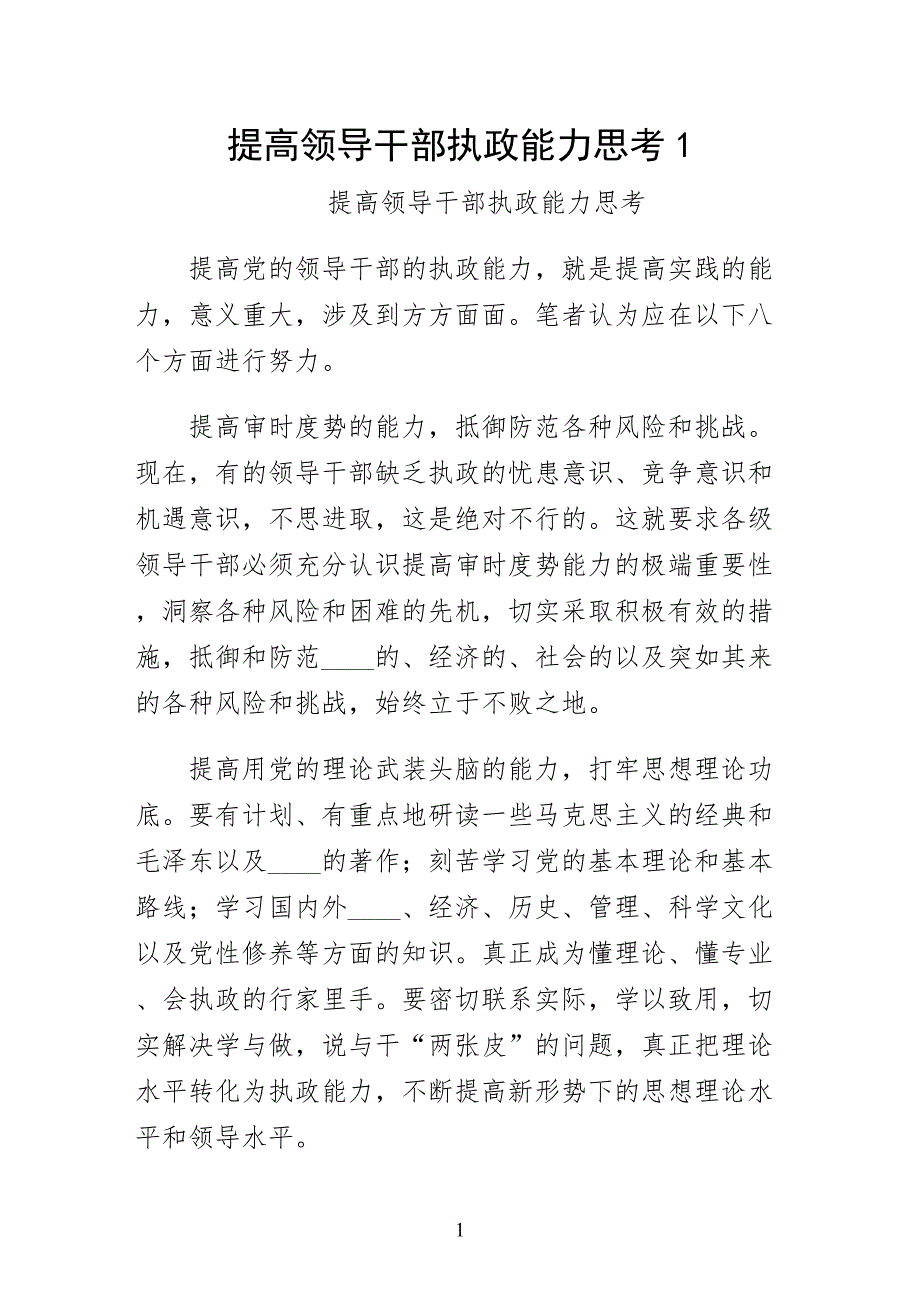 提高领导干部执政能力思考1
提高领导干部执政能力思考
提高党的领导干部的执政能力，就是提高实践的能
力，意义重大，涉及到方方面面。笔者认为应在以下八
个方面进行努力。
提高审时度势的能力，抵御防范各种风险和挑战。
现在，有的领导干部缺乏执政的忧患意识、竞争意识和
机遇意识，不思进取，这是绝对不行的。这就要求各级
领导干部必须充分认识提高审时度势能力的极端重要性
，洞察各种风险和困难的先机，切实采取积极有效的措
施，抵御和防范____的、经济的、社会的以及突如其来
的各种风险和挑战，始终立于不败之地。
提高用党的理论武装头脑的能力，打牢思想理论功
底。要有计划、有重点地研读一些马克思主义的经典和
毛泽东以及____的著作；刻苦学习党的基本理论和基本
路线；学习国内外____、经济、历史、管理、科学文化
以及党性修养等方面的知识。真正成为懂理论、懂专业
、会执政的行家里手。要密切联系实际，学以致用，切
实解决学与做，说与干“两张皮”的问题，真正把理论
水平转化为执政能力，不断提高新形势下的思想理论水
平和领导水平。
1